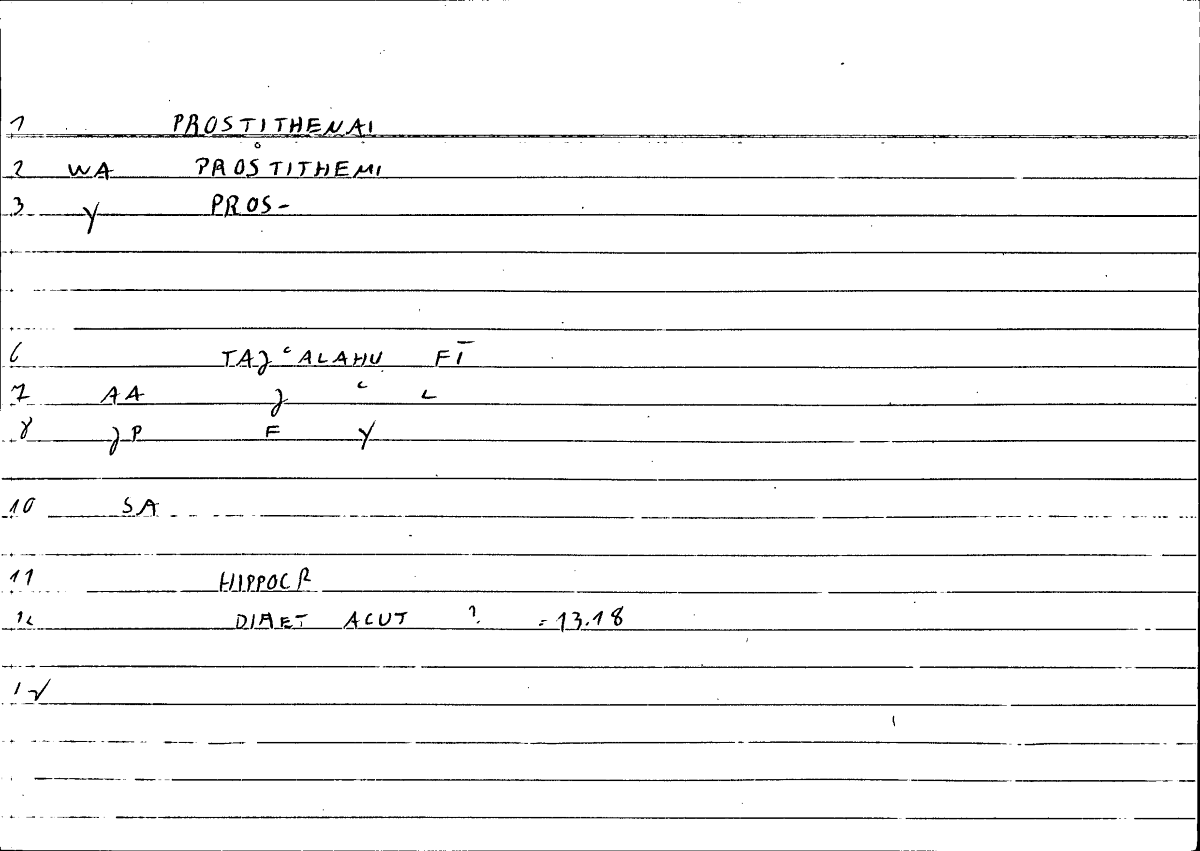 1 PROSTITHENAI
2 WA PROSTITHEMI
3 Y PROS-
6 TAJʿALAHU FĪ
7 AA J ʿ L
8 JP F Y
10 SA
11 HIPPOCR
12 DIAET ACUT ? = 13.18